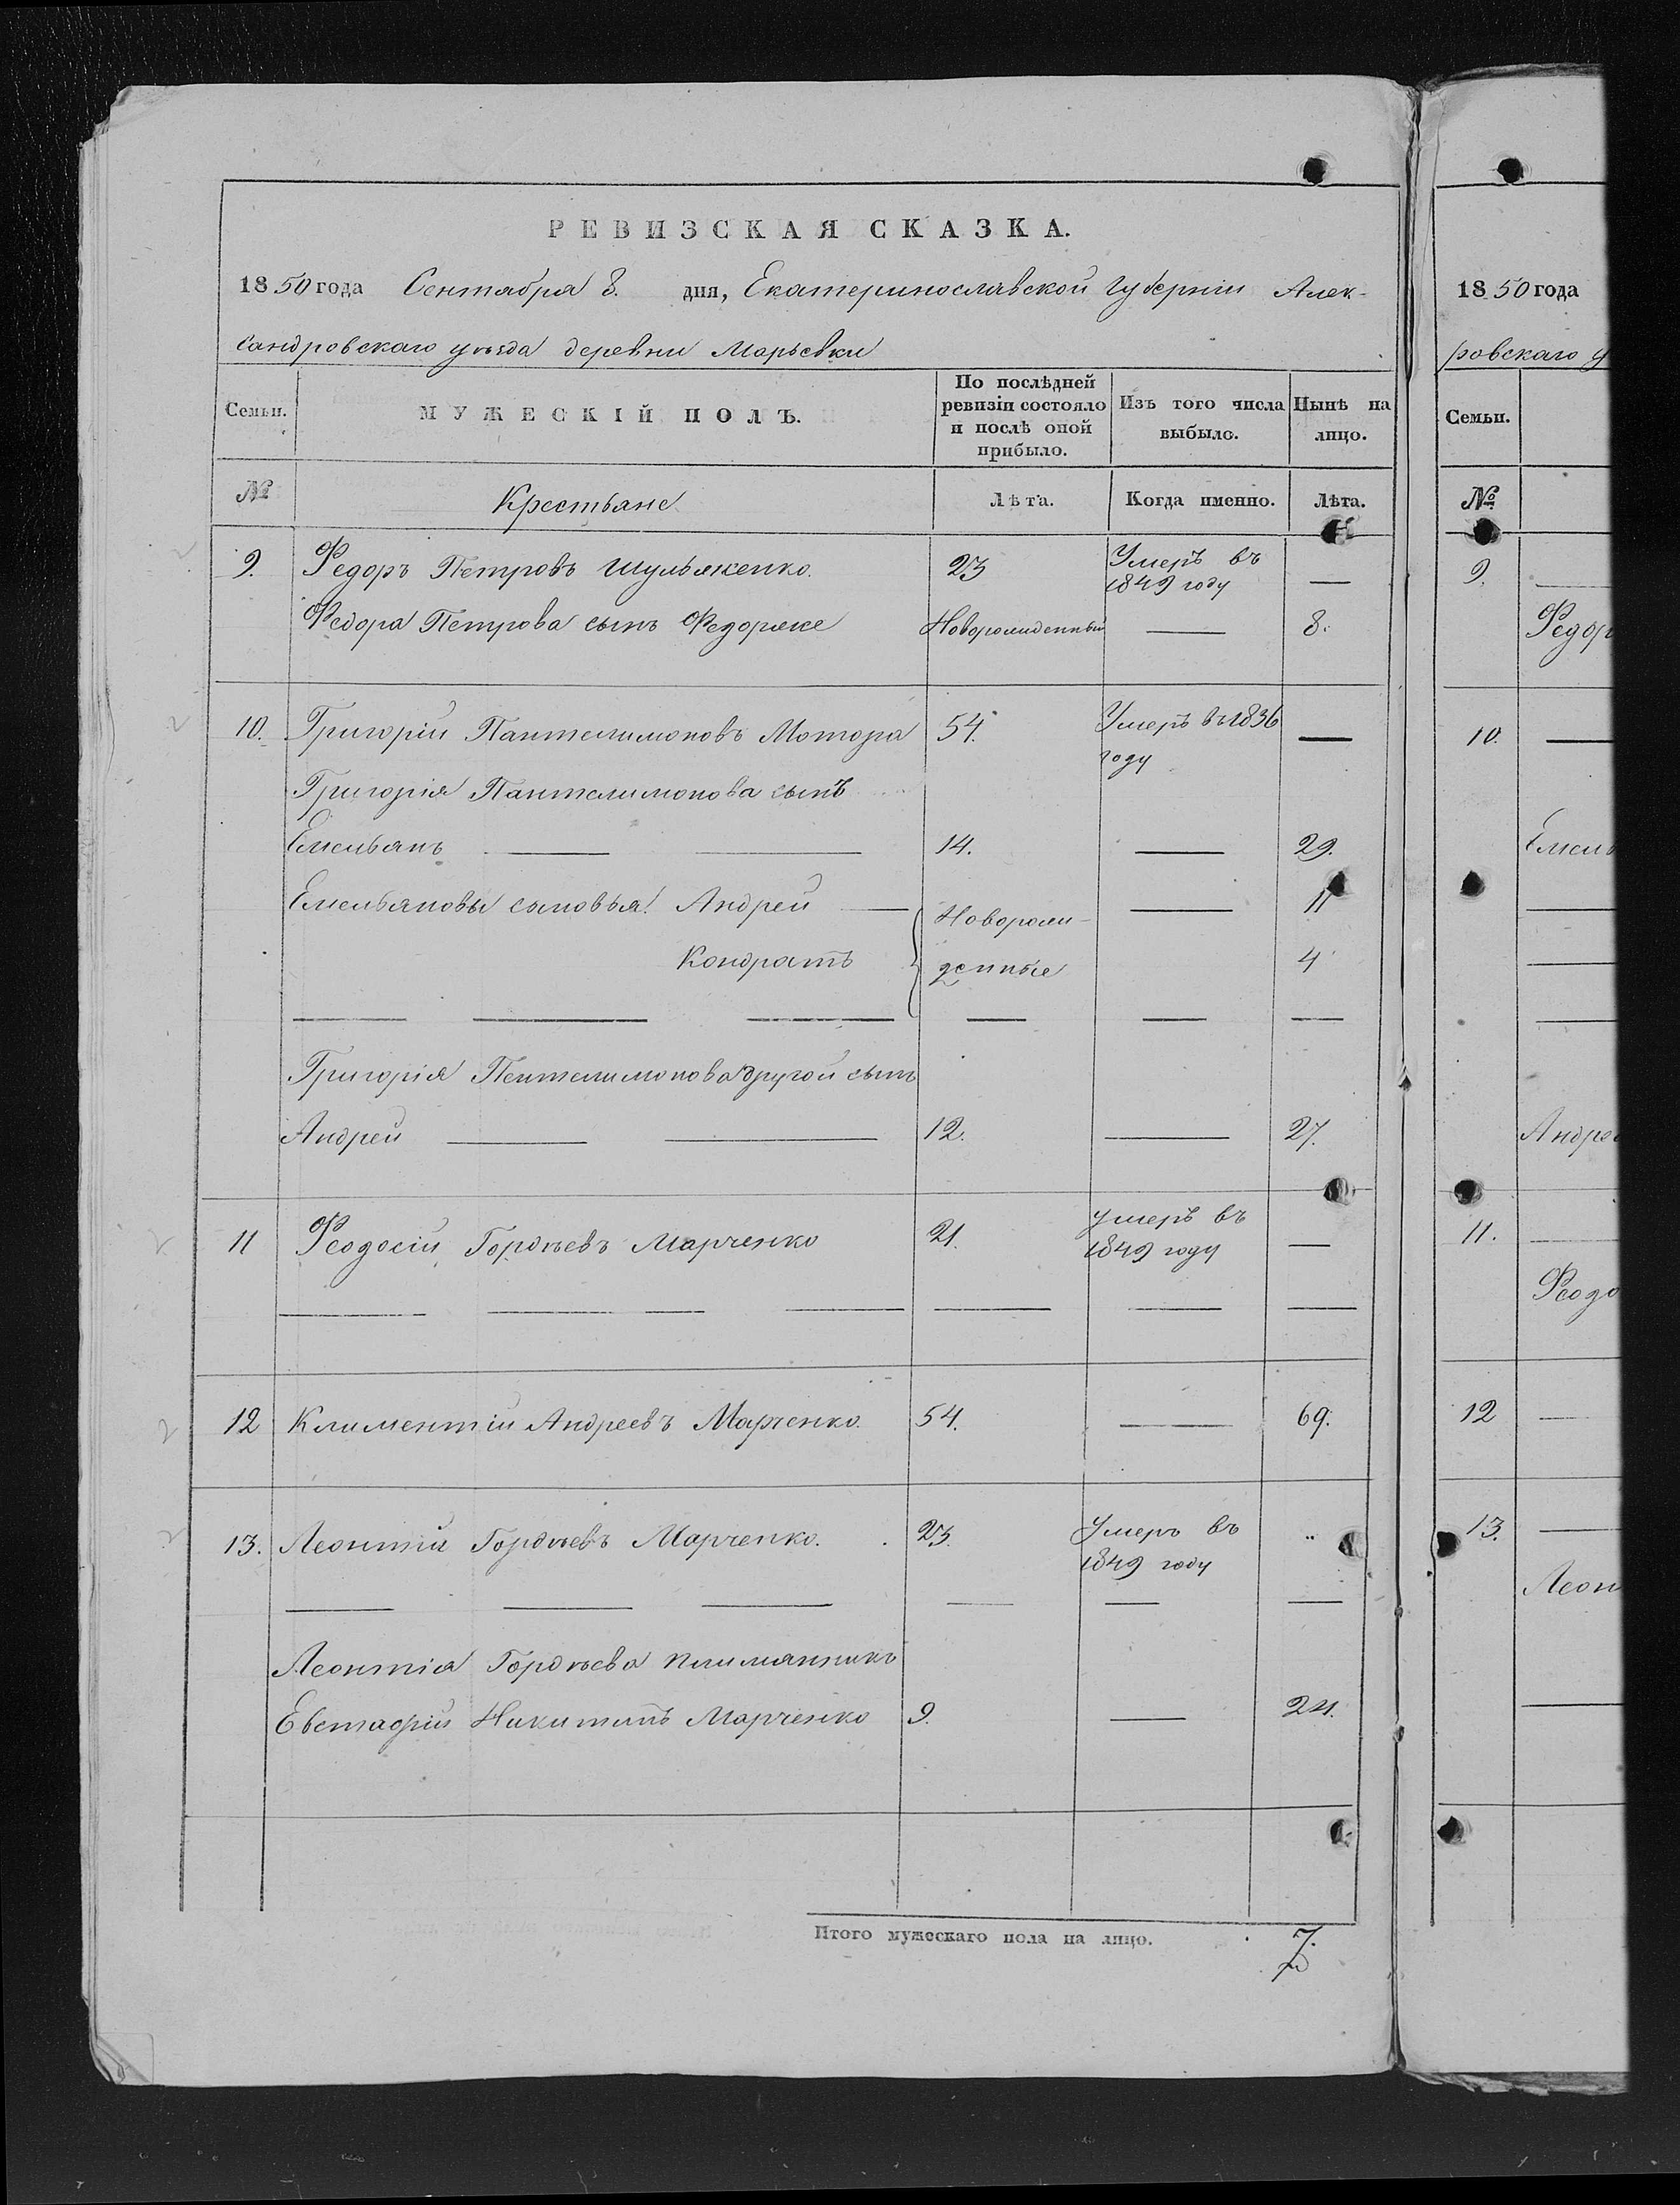 РЕВИЗСКАЯ СКАЗКА.
1850 года Сентября 8. дня, Екатеринославской Губернiи Алек-
сандровскаго уѣзда деревни Марьевки
Семьи.
МУЖЕСКІЙ ПОЛЪ.
По послѣдней ревизіи состояло и послѣ оной прибыло.
Изъ того числа выбыло.
Нынѣ на лицо.
№ Крестьяне Лѣта. Когда именно. Лѣта.
9. Федоръ Петровъ Шульженко. 23 Умеръ въ 1849 году —
Федора Петрова сынъ Федорже Новорожденный — 8.
10. Григорій Пантелимоновъ Мотора 54. Умеръ въ 1836 году —
Григорія Пантелимонова сынъ
Емельянъ — — 14. — 29.
Емельяновы сыновья: Андрей — Новорож- — 11
Кондратъ денные 4
— — — — — —
Григорія Пентелимонова другой сынъ
Андрей — — 12. — 27.
11 Феодосій Гордѣевъ Марченко 21. умеръ въ 1849 году —
— — — — — — —
12 Климентій Андреевъ Марченко. 54. — 69.
13. Леонтій Гордѣевъ Марченко. 23. Умеръ въ 1849 году "
— — — — — —
Леонтія Гордѣева племянникъ
Евстафій Никитинъ Марченко 9. — 24.
Итого мужескаго пола на лицо. 7.
1850 года
ровскаго у
Семьи.
№
9. —
Федор
10. —
Емель
—
—
—
Андре
11. —
Феодо
12 —
13. —
Леон
—